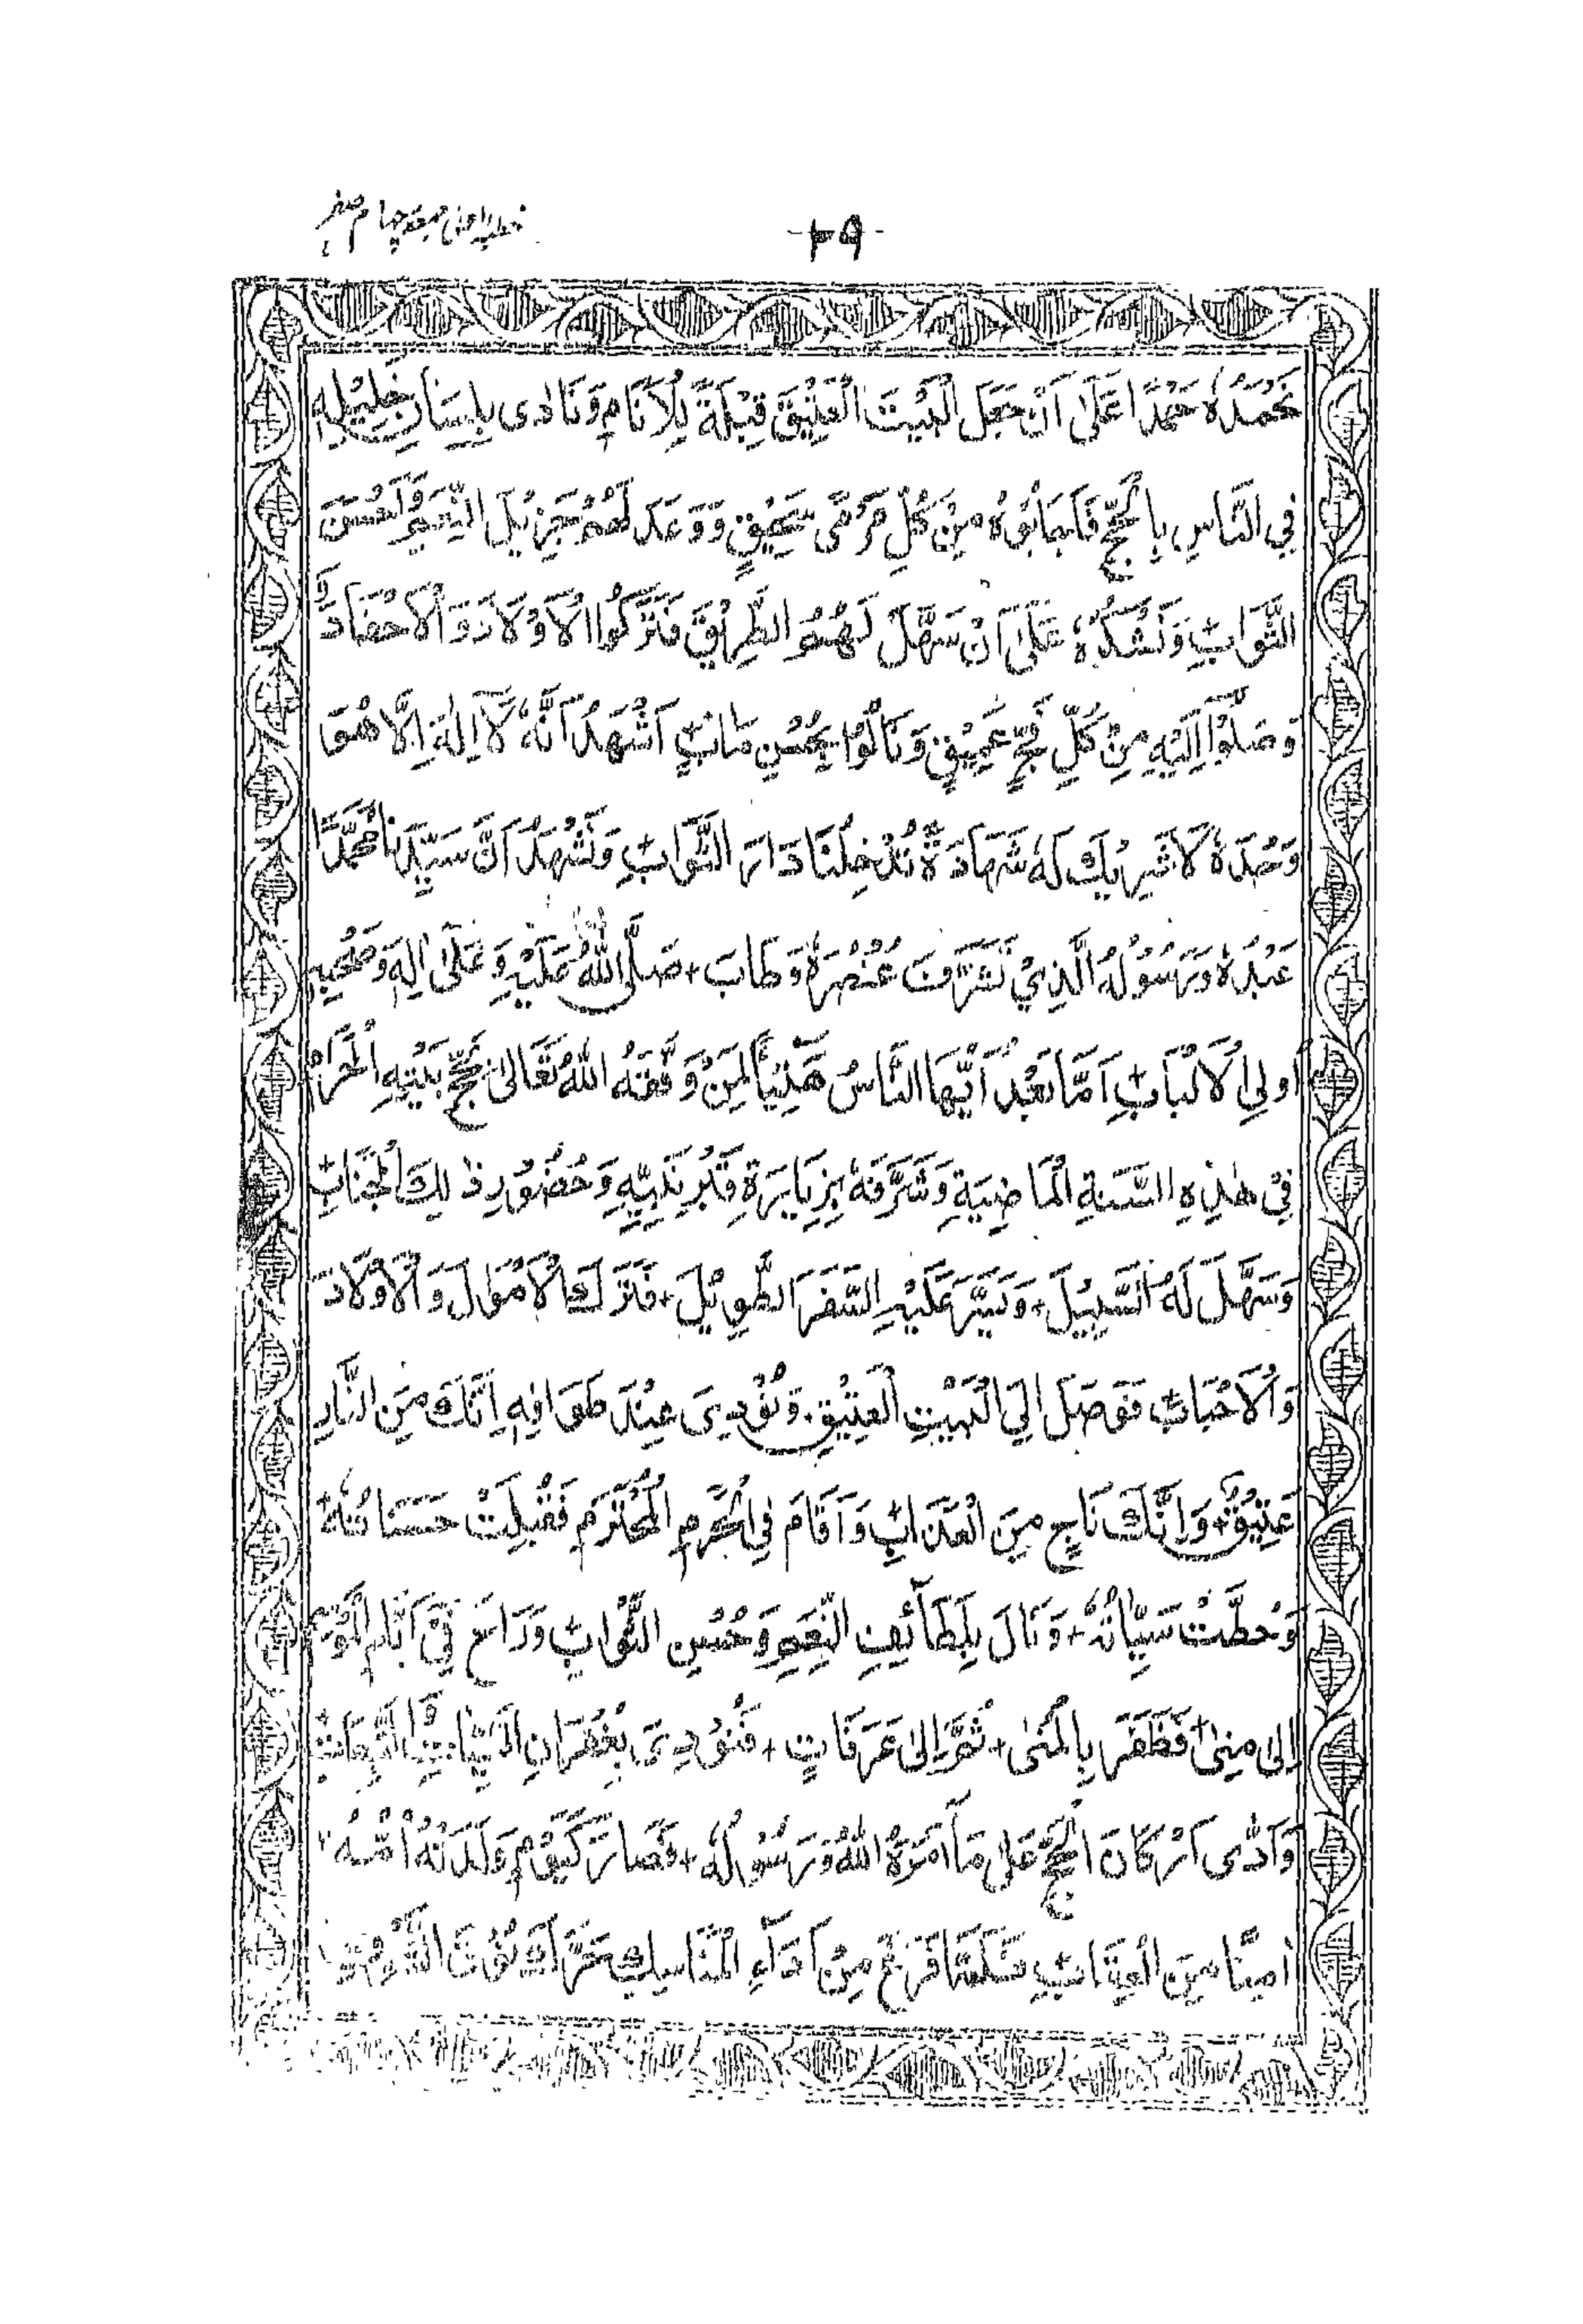 خطبہ اولیٰ جمعہ چہارم صفر
نَحْمَدُهٗ حَمْدًا عَلٰى اَنْ جَعَلَ الْبَيْتَ الْعَتِيْقَ قِبْلَةً لِّلْاَنَامِ وَنَادٰى بِلِسَانِ خَلِيْلِهٖ
فِي النَّاسِ بِالْحَجِّ فَاَجَابُوْهُ مِنْ كُلِّ مَرْمًى سَحِيْقٍ وَوَعَدَ لَهُمْ جَزِيْلَ النِّعَمِ وَاَحْسَنَ
الثَّوَابِ وَنَشْكُرُهٗ عَلٰى اَنْ سَهَّلَ لَهُمُ الطَّرِيْقَ فَتَرَكُوا الْاَوْلَادَ وَالْاَحْفَادَ وَ
وَصَلُوْا اِلَيْهِ مِنْ كُلِّ فَجٍّ عَمِيْقٍ وَنَالُوْا بِحُسْنِ مَاٰبٍ اَشْهَدُ اَنَّهٗ لَآ اِلٰهَ اِلَّا هُوَ
وَحْدَهٗ لَا شَرِيْكَ لَهٗ شَهَادَةً تُدْخِلُنَا دَارَ الثَّوَابِ وَنَشْهَدُ اَنَّ سَيِّدَنَا مُحَمَّدًا
عَبْدُهٗ وَرَسُوْلُهُ الَّذِيْ تَشَرَّفَ عُنْصُرُهٗ وَطَابَ + صَلَّى اللّٰهُ عَلَيْهِ وَعَلٰى اٰلِهٖ وَصَحْبِهٖ
اُولِي الْاَلْبَابِ + اَمَّا بَعْدُ اَيُّهَا النَّاسُ هَنِيْئًا لِّمَنْ وَفَّقَهُ اللّٰهُ تَعَالٰى بِحَجِّ بَيْتِهِ الْحَرَامِ
فِيْ هٰذِهِ السَّنَةِ الْمَاضِيَةِ وَشَرَّفَهٗ بِزِيَارَةِ قَبْرِ نَبِيِّهٖ وَحُضُوْرِ ذٰلِكَ الْجَنَابِ +
وَسَهَّلَ لَهُ السَّبِيْلَ + وَيَسَّرَ عَلَيْهِ السَّفَرَ الطَّوِيْلَ + فَتَرَكَ الْاَمْوَالَ وَالْاَوْلَادَ
وَالْاَحْبَابَ فَوَصَلَ اِلَى الْبَيْتِ الْعَتِيْقِ + وَنُوْدِيَ عِنْدَ طَوَافِهٖ اِنَّكَ مِنَ النَّارِ
عَتِيْقٌ + وَاِنَّكَ نَاجٍ مِنَ الْعَذَابِ وَاَقَامَ فِي الْحَرَمِ الْمُحْتَرَمِ فَقُبِلَتْ حَسَنَاتُهٗ +
وَحُطَّتْ سَيِّاٰتُهٗ + وَنَالَ بِلَطَآئِفِ النِّعَمِ وَحُسْنِ الثَّوَابِ وَرَاحَ فِيْ
اِلٰى مِنٰى + فَظَفَرَ بِالْمُنٰى + ثُمَّ اِلٰى عَرَفَاتٍ + فَنُوْدِيَ بِغُفْرَانِ
وَاَدّٰى اَرْكَانَ الْحَجِّ عَلٰى مَآ اَمَرَهُ اللّٰهُ وَرَسُوْلُهٗ + فَصَارَ كَيَوْمٍ وَلَدَتْهُ اُمُّهٗ +
اٰمِنًا مِنَ الْعِقَابِ فَلَمَّا فَرَغَ مِنْ اَدَآءِ الْمَنَاسِكِ